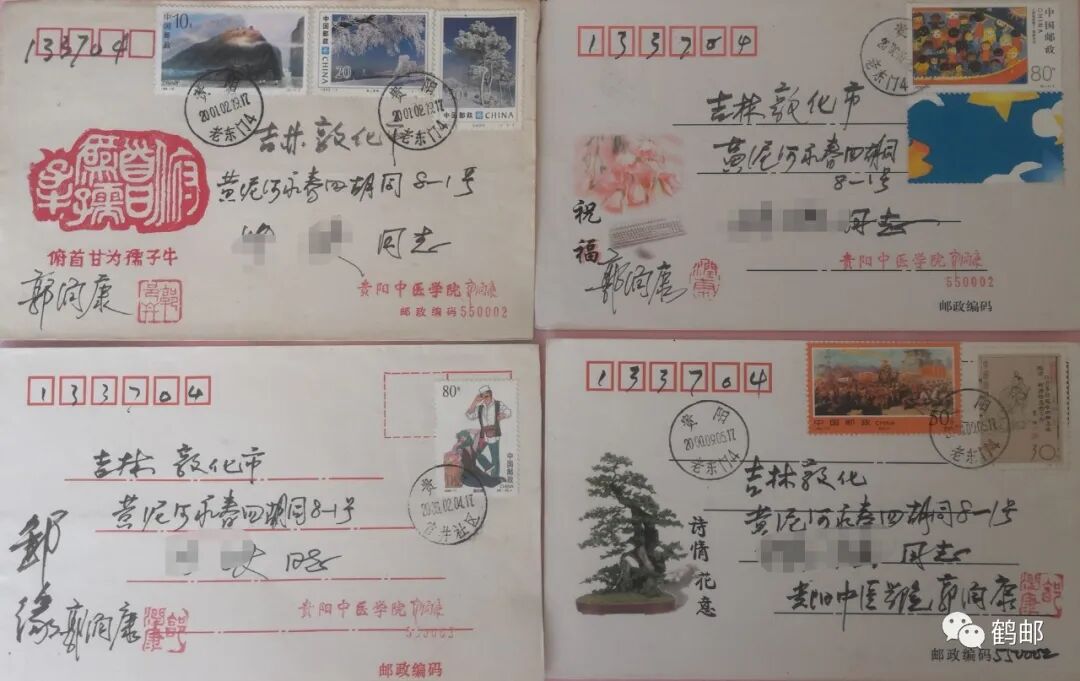 133704
10分
中国邮政
20分
中国邮政 CHINA
中国邮政 CHINA
贵阳
2001.02.19.17
老东门4
贵阳
2001.02.19.17
老东门4
吉林敦化市
黄泥河永春四胡同8-1号
同志
俯首甘为孺子牛
俯首甘为孺子牛
郭润康
贵阳中医学院郭润康
邮政编码550002
133704
中国邮政
CHINA
80分
贵阳
老东门4
吉林敦化市
黄泥河永春四胡同
8-1号
同志
祝福
郭润康
润康
贵阳中医学院郭润康
550002
邮政编码
133704
80分
中国邮政
贵阳
吉林敦化市
黄泥河永春四胡同8-1号
同志
邮缘
郭润康
润康
贵阳中医学院郭润康
邮政编码
133704
中国邮政 CHINA
80分
30分
贵阳
老东门4
贵阳
老东门4
吉林敦化
黄泥河永春四胡同8-1号
同志
诗情花意
贵阳中医学院郭润康
邮政编码550002
鹤邮